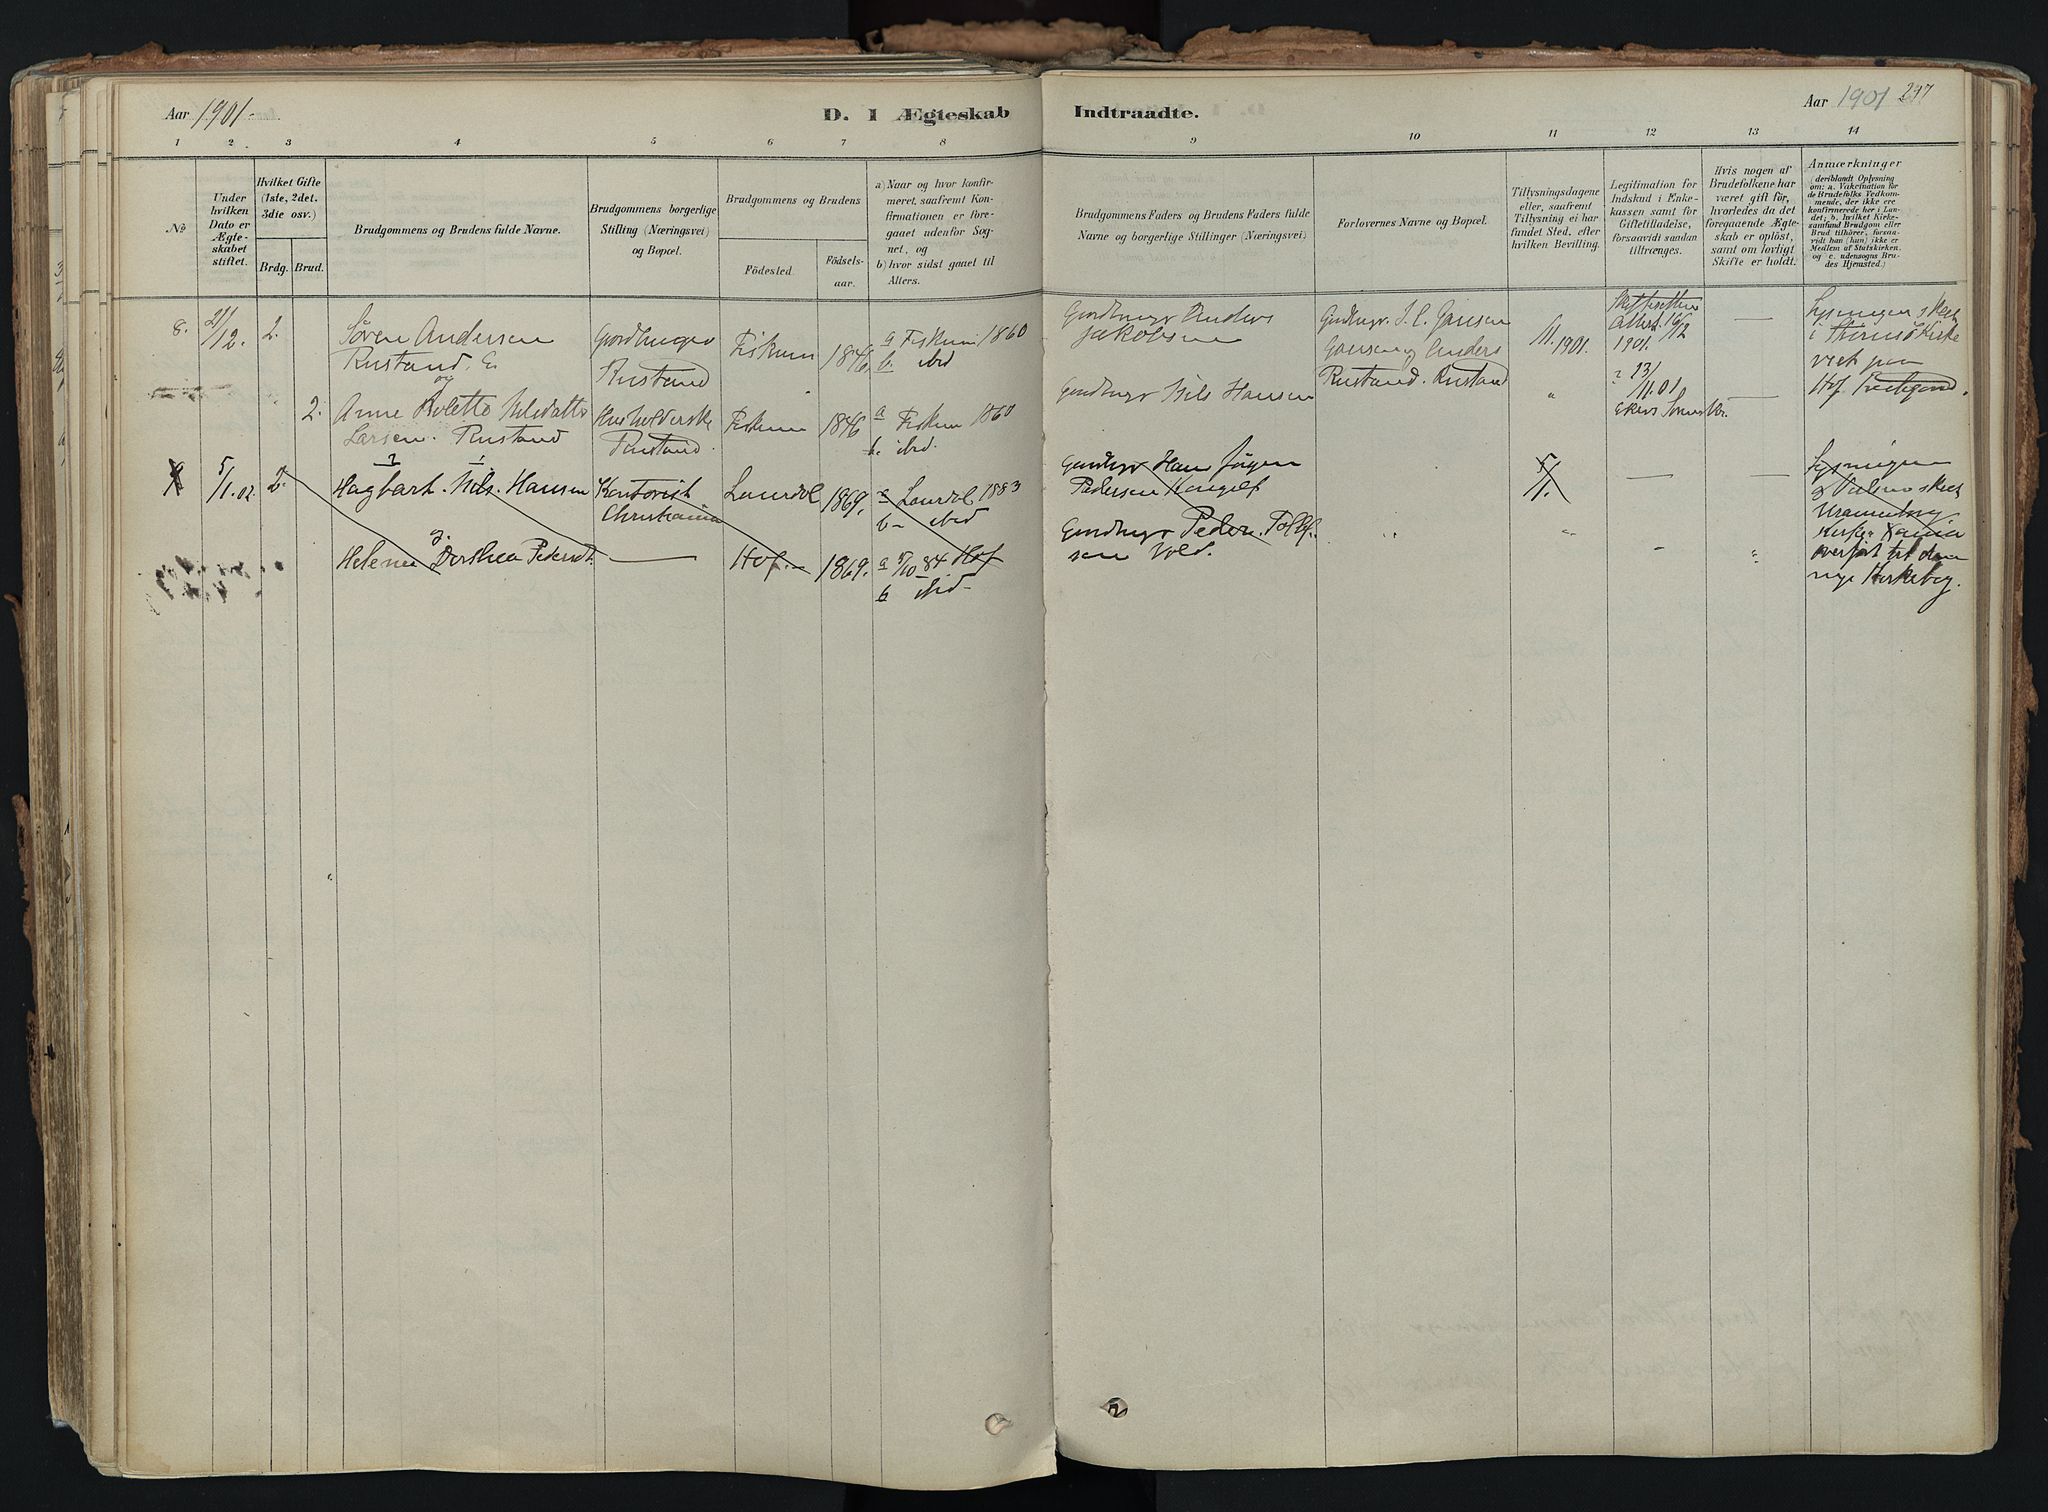 Aar 1901.
D. I Ægteskab
Indtraadte.
Aar 1901
297
1 2 3 4 5 6 7 8
9 10 11 12 13 14
№
Under hvilken Dato er Ægteskabet stiftet.
Hvilket Gifte (1ste, 2det. 3die osv.)
Brdg. Brud.
Brudgommens og Brudens fulde Navne.
Brudgommens borgerlige Stilling (Næringsvei) og Bopœl.
Brudgommens og Brudens
Födested.
Födsels-aar.
a) Naar og hvor konfirmeret, saafremt Konfirmationen er foregaaet udenfor Sognet, og
b) hvor sidst gaaet til Alters.
Brudgommens Faders og Brudens Faders fulde Navne og borgerlige Stillinger (Næringsvei).
Forlovernes Navne og Bopœl.
Tillysningsdagene eller, saafremt Tillysning ei har fundet Sted, efter hvilken Bevilling.
Legitimation for Indskud i Enkekassen samt for Giftetilladelse, forsaavidt saadan tiltrœnges.
Hvis nogen af Brudefolkene har vœret gift för, hvorledes da det foregaaende Ægteskab er oplöst, samt om lovligt Skifte er holdt.
Anmœrkninger
(deriblandt Oplysning om: a. Vakcination for de Brudefolks Vedkommende, der ikke ere konfirmerede her i Landet; b. hvilket Kirkesamfund Brudgom eller Brud tilhörer, forsaavidt han (hun) ikke er Medlem af Statskirken. og c. udensogns Brudes Hjemsted.)
8. 21/12. 2. Sören Andersen
Rustand. E.
og
Gordbruger
Rustand
Fiskum 1846. a Fiskum. 1860
b. ibd
Gordbrugr Anders
Jakobsen
Gordbrugr. J. C. Jansen
Jansen og Anders
Rustand. Rustand
/11. 1901.
Attest. 16/12
1901.
23/11. 01
Lysningen skeet
i Kirke
viet paa
Hof Prestegaard.
2. Anne Bolette Nilsdatter
Larsen. Rustand
Husholderske
Rustand.
Fiskum 1846 a Fiskum 1860
b. ibid.
Gordbrugr Nils Hansen
9 5/1. 02. 2. Hagbart. Nils. Hansen
Kontorist
Christiania
Laurdal 1869. a Laurdal 1883
b- ibid
Gordbrugr Hans Jörgen
Pedersen
5/1.
Lysningen
skeet
Uranienborg
Kirke Xania
overfört til den
nye Kirkebog.
Helene Dorthea Pedersdt. Hof. 1869. a 5/10 84 Hof
b ibid
Gordbrugr Peder Tollefsen
Vold.